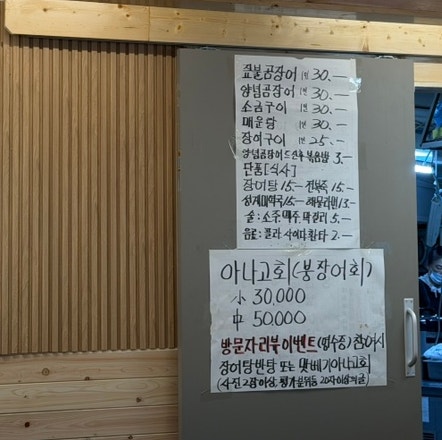 짚불곰장어 1인 30.—
양념곰장어 1인 30.—
소금구이 1인 30.—
매운탕 1인 30.—
장어구이 1인 25.—
양념곰장어 드신후 볶음밥 3.—
단품[식사]
장어탕 15.— 전복죽 15.—
성게미역국 15.— 해물라면 13.—
술: 소주, 맥주, 막걸리 5.—
음료: 콜라 사이다 환타 2.—
아나고회(붕장어회)
小 30,000
中 50,000
방문자리뷰이벤트(영수증) 참여시
장어탕반탕 또는 맛배기아나고회
(사진 2장이상, 평가 분위등 20자이상의글)